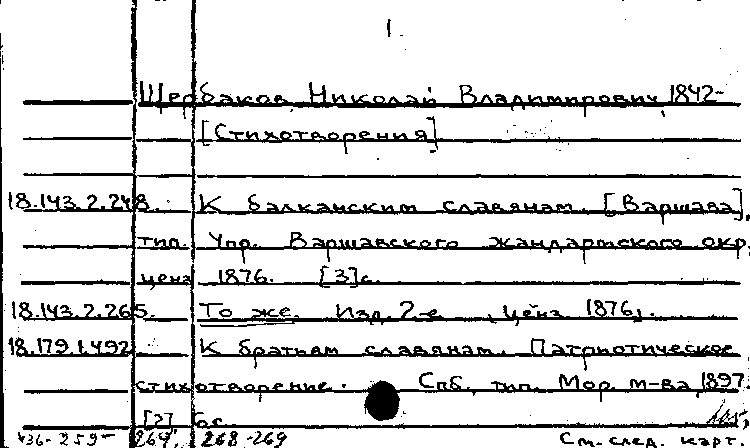 1.
Щербаков, Николай Владимирович, 1842-
[Стихотворения]
18.143.2.248. К балканским славянам. [Варшава],
тип. Упр. Варшавского жандармского окр.
цена 1876. [3]с.
18.143.2.265. То же. Изд. 2-е , цена 1876,.
18.179.1.492 К братьям славянам. Патриотическое
стихотворение. Спб., тип. Мор. м-ва, 1897.
[2] 6с.
264, 268-269 См. след. карт.